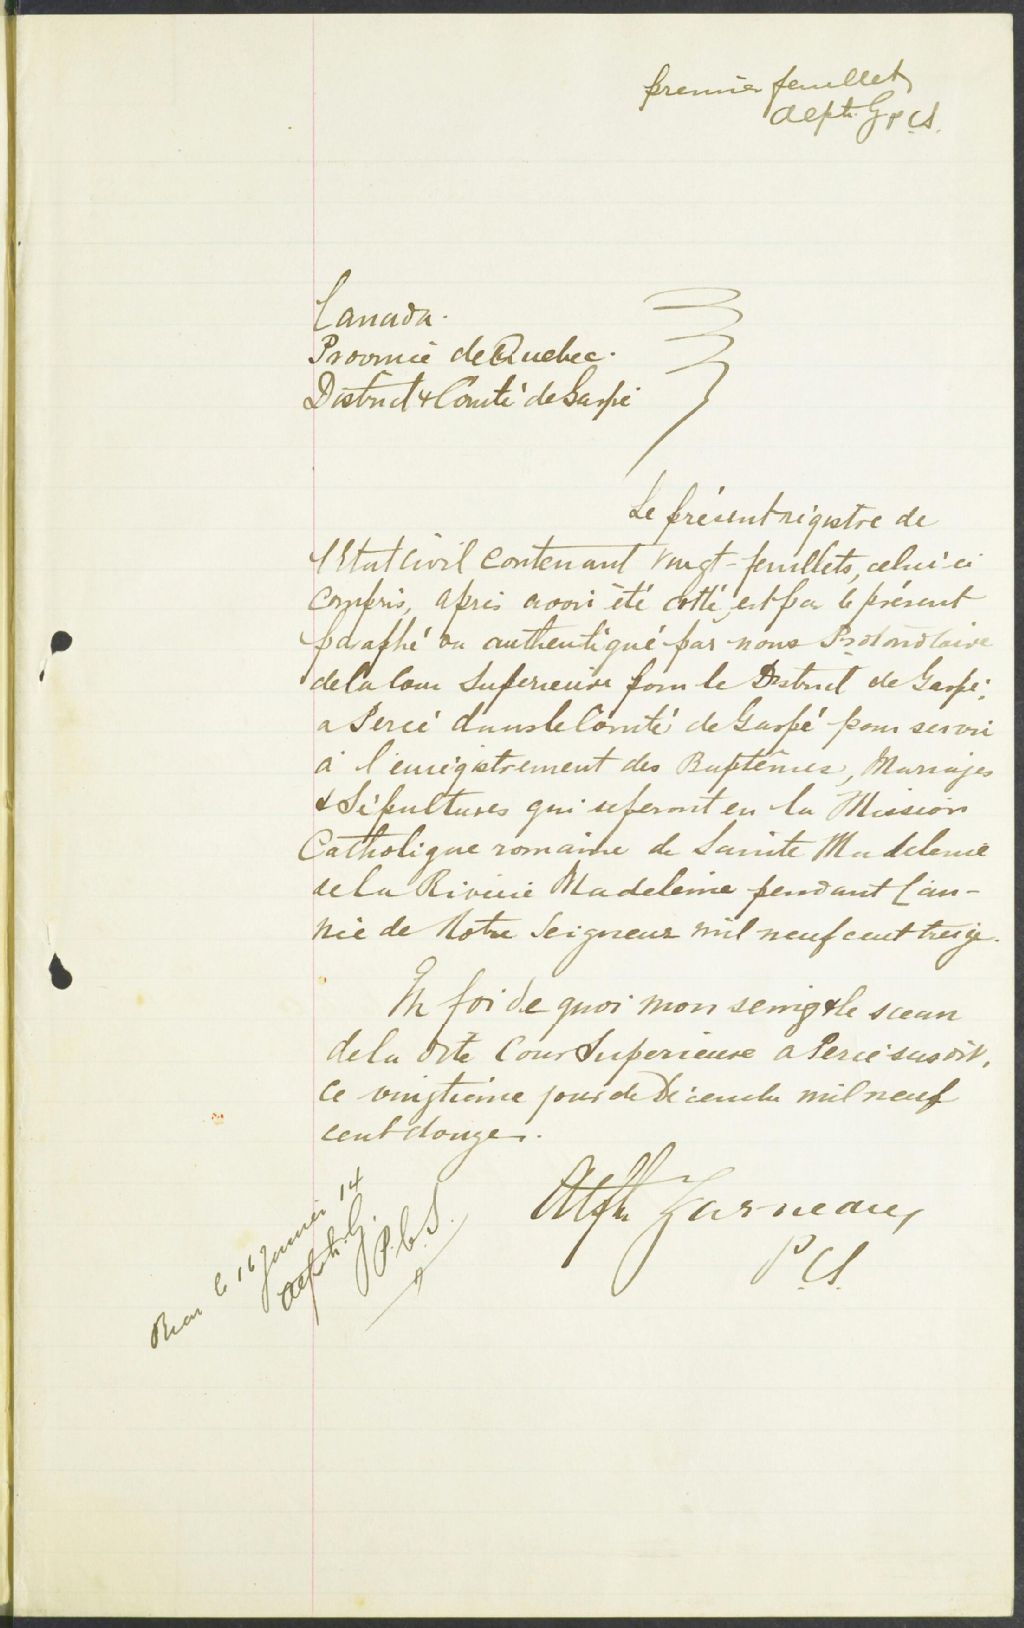 premier feuillet
Alph. G p CS.
Canada.
Province de Quebec.
District & Comté de Gaspé
Le présent registre de
l'Etat Civil contenant vingt-feuillets, celui-ci
compris, après avoir été cotté, est par le présent
paraphé ou authentiqué par nous Protonotaire
de la Cour Superieure pour le District de Gaspé,
a Percé dans le Comté de Gaspé pour servir
à l'enregistrement des Baptêmes, Mariages
& Sépultures qui se feront en la Mission
Catholique romaine de Sainte Madeleine
de la Riviere Madeleine pendant l'an-
née de Notre Seigneur mil neuf cent treize.
En foi de quoi mon seing & le sceau
de la dite Cour Superieure a Percé susdit,
ce vingtième jour de Décembre mil neuf
cent douze.
Alph Garneau,
P.CS.
le 16 janvier 14
Alph. G.
P.C.S.